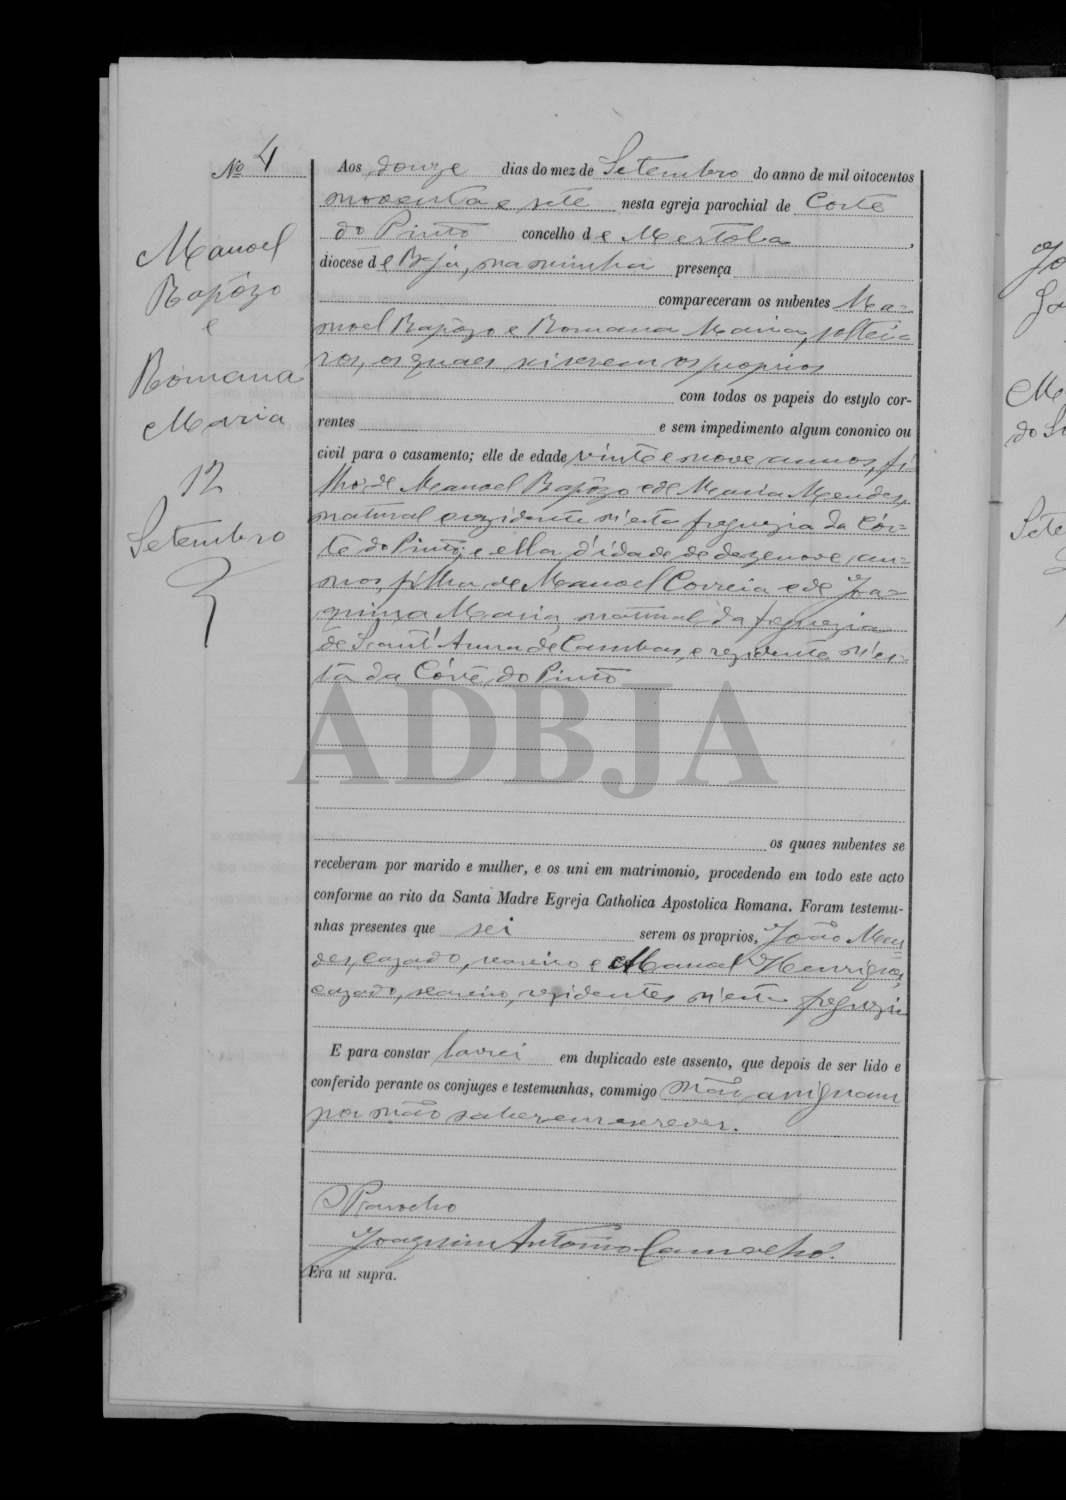 Nº 4
Manoel
Rapôzo
e
Romana
Maria
12
Setembro
Aos douze dias do mez de Setembro do anno de mil oitocentos
noventa e sete nesta egreja parochial de Corte
do Pinto concelho de Mertola,
diocese de Beja, na minha presença
compareceram os nubentes Ma=
noel Rapôzo e Romana Maria, soltei=
ros, os quaes sei serem os proprios
com todos os papeis do estylo cor-
rentes e sem impedimento algum cononico ou
civil para o casamento; elle de edade vinte e nove annos, fi-
lho, de Manoel Rapôzo e de Maria Mendes,
natural e rezidente n'esta freguezia da Côr-
te do Pinto; e ella, d'idade, de dezenove, an-
nos, filha de Manoel Correia e de Joa=
quina Maria, natural da freguezia
de Sant'Anna de Cambas, e rezidente n'es-
ta da Côrte, do Pinto
ADBJA
os quaes nubentes se
receberam por marido e mulher, e os uni em matrimonio, procedendo em todo este acto
conforme ao rito da Santa Madre Egreja Catholica Apostolica Romana. Foram testemu-
nhas presentes que sei serem os proprios, João Men
des, cazado, seareiro e Manoel Henriques,
cazado, seareiro, rezidentes n'esta freguezia
E para constar lavrei em duplicado este assento, que depois de ser lido e
conferido perante os conjuges e testemunhas, commigo não, assignam
por não saberem escrever.
O Parocho
Joaquim Antonio Camacho.
Era ut supra.
Setem